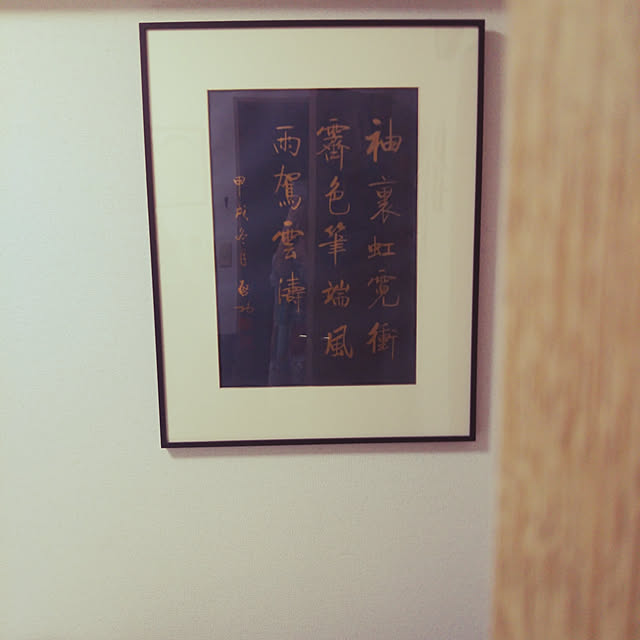 袖裏虹霓衝
霽色筆端風
雨駕雲濤
甲戌冬月啟功